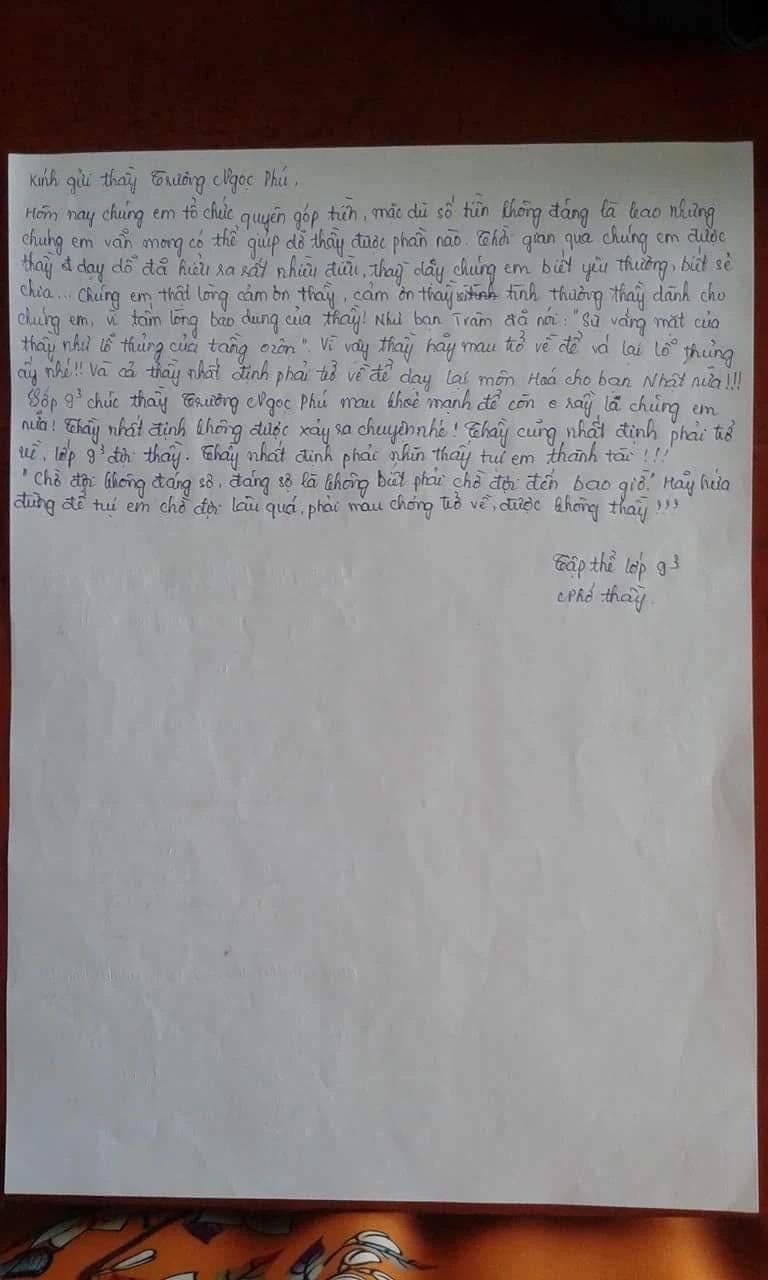 Kính gửi thầy Trương Ngọc Phú,
Hôm nay chúng em tổ chức quyên góp tiền, mặc dù số tiền không đáng là bao nhưng
chúng em vẫn mong có thể giúp đỡ thầy được phần nào. Thời gian qua chúng em được
thầy dạy dỗ đã hiểu ra rất nhiều điều, thầy dạy chúng em biết yêu thương, biết sẻ
chia... Chúng em thật lòng cảm ơn thầy, cảm ơn thầy vì tình thương thầy dành cho
chúng em, vì tấm lòng bao dung của thầy! Như bạn Trâm đã nói: "Sự vắng mặt của
thầy như lỗ thủng của tầng ozôn". Vì vậy thầy hãy mau trở về để vá lại lỗ thủng
ấy nhé!! Và cả thầy nhất định phải trở về để dạy lại môn Hoá cho bạn Nhất nữa!!!
Lớp 9³ chúc thầy Trương Ngọc Phú mau khoẻ mạnh để còn rầy la chúng em
nữa! Thầy nhất định không được xảy ra chuyện nhé! Thầy cũng nhất định phải trở
về, lớp 9³ đợi thầy. Thầy nhất định phải nhìn thấy tụi em thành tài!!!
"Chờ đợi không đáng sợ, đáng sợ là không biết phải chờ đợi đến bao giờ." Hãy hứa
đừng để tụi em chờ đợi lâu quá, phải mau chóng trở về, được không thầy???
Tập thể lớp 9³
Nhớ thầy.